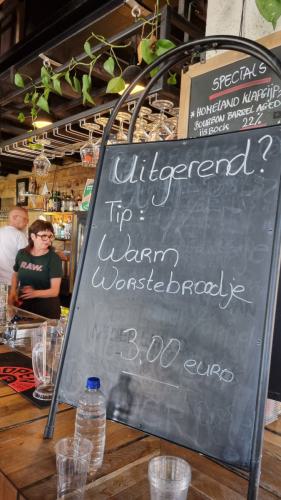 SPECIALS
* HOMELAND KLAPGIJP
BOURBON BARREL AGED
IJSBOCK 22%
Uitgerend?
Tip:
Warm
Worstebroodje
3,00 euro
RAW.